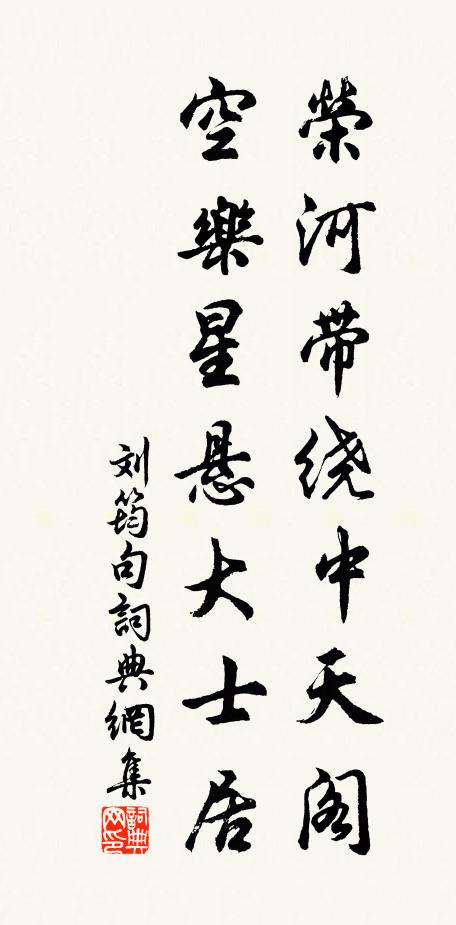 榮河帶绕中天阁
空樂星悬大士居
刘筠句詞典網集
詞典网印